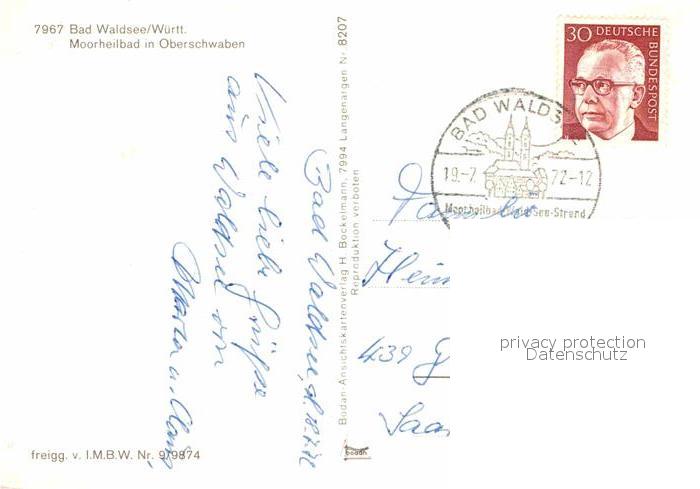 7967 Bad Waldsee/Württ.
Moorheilbad in Oberschwaben
Bad Waldsee, d. 18.7.72
Viele liebe Grüße
aus Waldsee von
Martha u. Claus
freigg. v. I.M.B.W. Nr. 9/9874
Bodan-Ansichtskartenverlag H. Bockelmann, 7994 Langenargen Nr. 8207
Reproduktion verboten
bodan
30 DEUTSCHE
BUNDESPOST
BAD WALDS
19.-7. 72-12
Moorheilbad Waldsee-Strand
Familie
Hein
439 G
Saa
privacy protection
Datenschutz